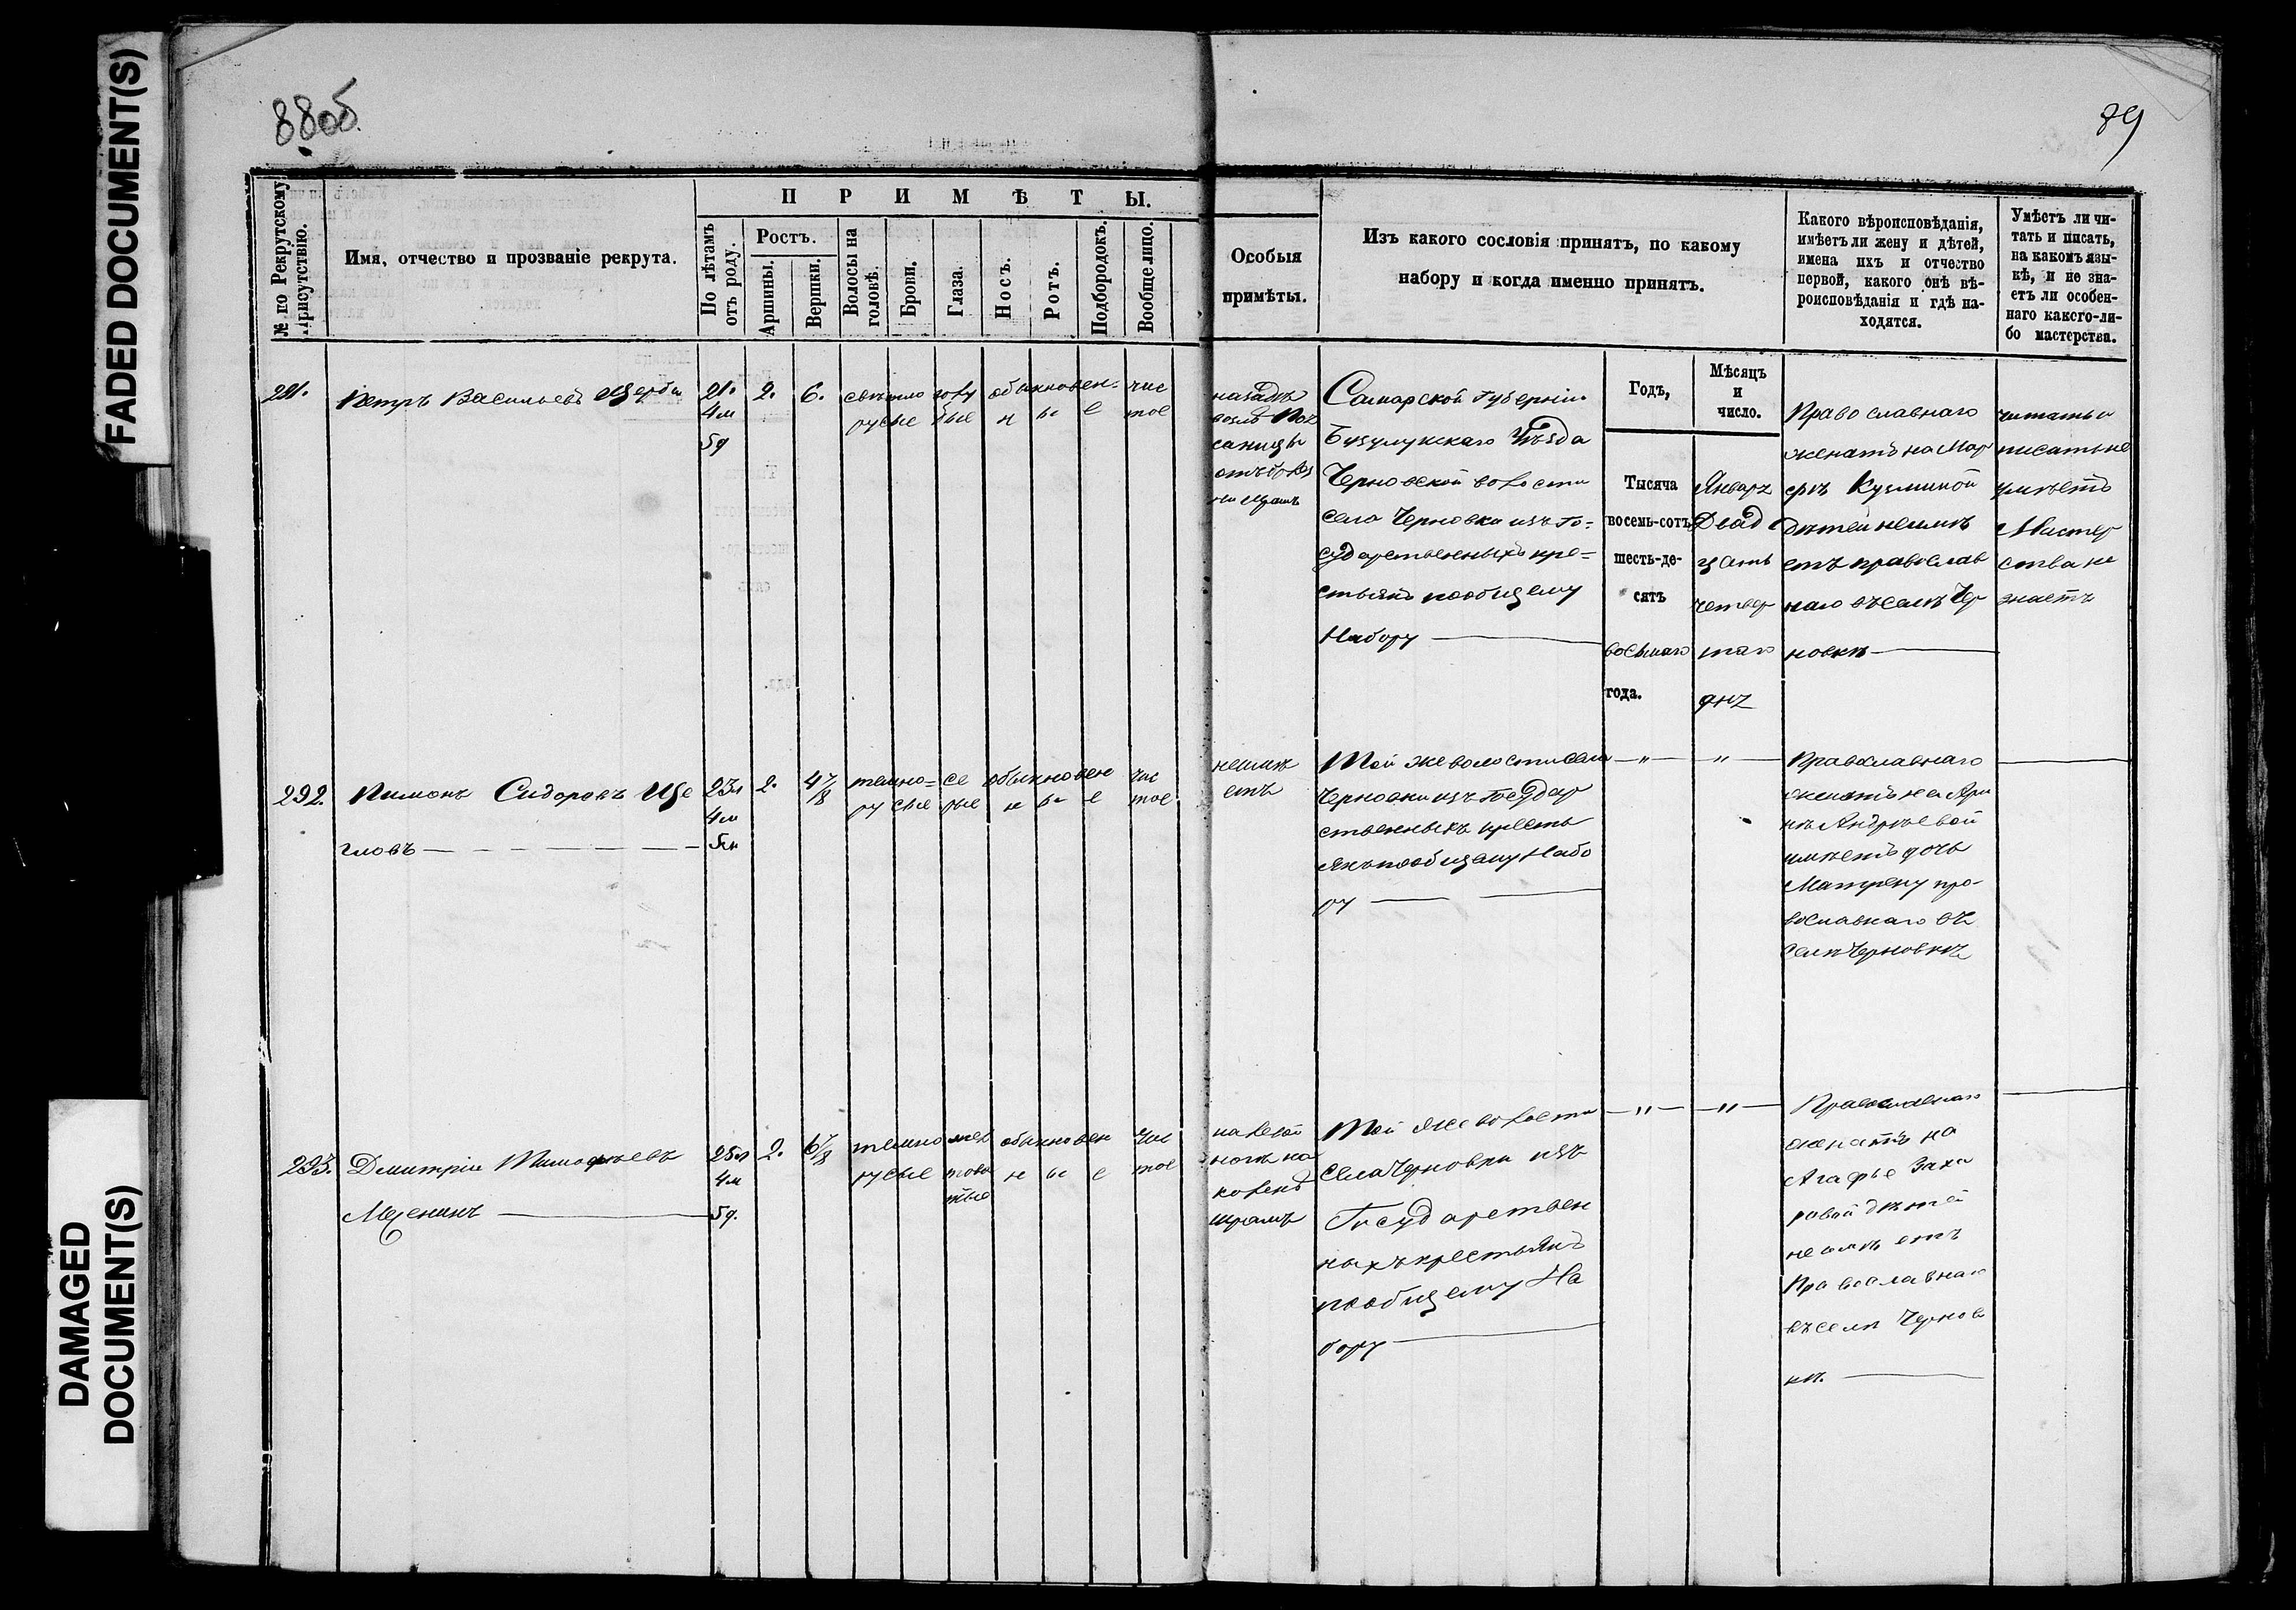 FADED DOCUMENT(S)
DAMAGED
DOCUMENT(S)
88об
89
№ по Рекрутскому
Присутствію.
Имя, отчество и прозваніе рекрута.
ПРИМѢТЫ.
По лѣтамъ
отъ роду.
Ростъ.
Аршины.
Вершки.
Волосы на
головѣ.
Брови.
Глаза.
Носъ.
Ротъ.
Подбородокъ.
Вообще лицо.
Особыя
примѣты.
Изъ какого сословія принятъ, по какому
набору и когда именно принятъ.
Какого вѣроисповѣданія,
имѣетъ ли жену и дѣтей,
имена ихъ и отчество
первой, какого онѣ вѣ-
роисповѣданія и гдѣ на-
ходятся.
Умѣетъ ли чи-
тать и писать,
на какомъ язы-
кѣ, и не зна-
етъ ли особен-
наго какого-ли-
бо мастерства.
Годъ,
Мѣсяцъ
и
число.
Тысяча
восемь-сотъ
шесть-де-
сятъ
восьмаго
года.
Январь
Двад
цать
четвер
таго
дня
291. Петръ Васильевъ Щерба
21.
4м
5д
2. 6.
свѣтло
русые
голу
бые
обыкновен-
н ы е
чис
тое
назадѣ
возлѣ
отъ
шрамъ
Самарской Губерніи
Бузулукскаго Уѣзда
Черновской волости
села Черновки изъ Го-
сударственныхъ кре-
стьянъ пообщему
Набору
Православнаго
женатъ на Мар
Кузминой
дѣтей неимѣ
етъ православ
наго въселѣ Чер
новкѣ
читать и
писать не
умѣетъ
Мастер
ства не
знаетъ
292. Пимонъ Сидоровъ Ще
гловъ
23л
4м
2. 4 7/8
темно-
русые
се
рые
обыкновен
н ы е
чис
тое
неимѣ
етъ
Той же волости села
Черновки изъ Государ
ственныхъ кресть
янъ пообщему Набо
ру
Православнаго
женатъ на Ари
нѣ Андрѣевой
имѣетъ дочь
Матрену пра-
вославнаго въ
селѣ Черновкѣ
293. Дмитрій Тимофѣевъ
25л
4м
5д.
2. 6 7/8
темно
русые
жел
това
тые
обыкновен
н ы е
чис
тое
на
ногѣ на
колѣнѣ
шрамъ
Той же волости
села Черновки изъ
Государствен
ныхъ крестьянъ
пообщему На
бору
Православнаго
женатъ на
Агафье Заха
ровой дѣтей
неимѣетъ
Православнаго
въселѣ Чернов
кѣ.